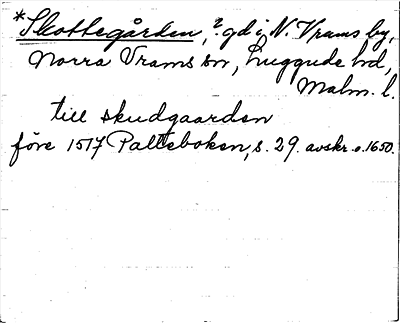 *Skottegården, ? gd i N. Vrams by,
Norra Vrams sn, Luggude hd,
Malm. l.
till skudgaarden
före 1517 Palteboken, s. 29. avskr. o. 1650.